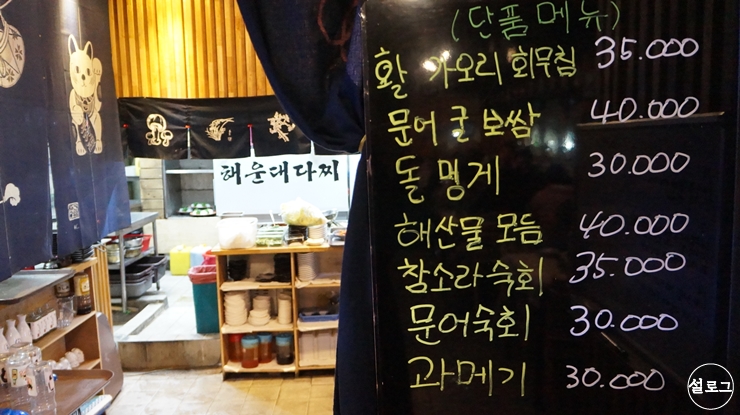 (단품메뉴)
활 가오리 회무침 35.000
문어 굴 보쌈 40.000
돌 멍게 30.000
해산물 모듬 40.000
참소라숙회 35.000
문어숙회 30.000
과메기 30.000
해운대다찌
설로그